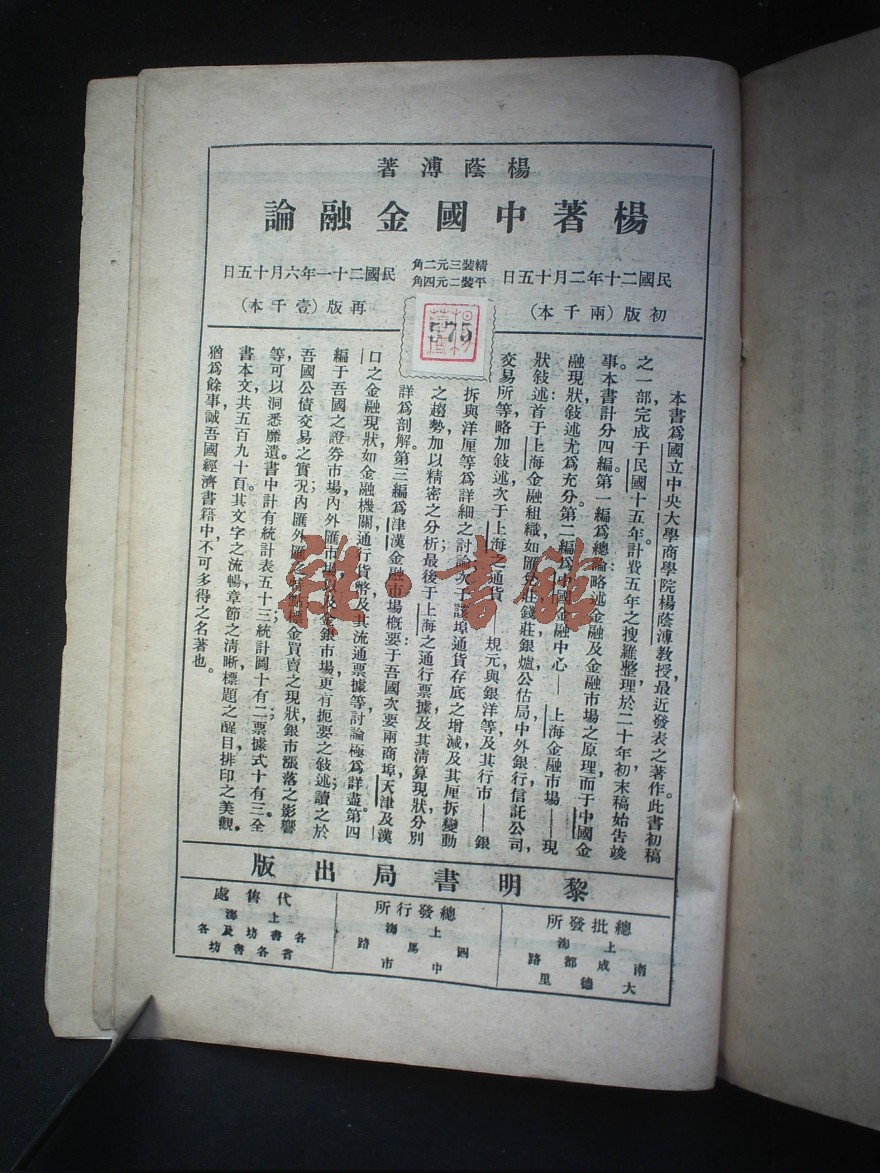 楊蔭溥著
楊著中國金融論
民國二十年二月十五日
初版(兩千本)
精裝三元二角
平裝二元四角
民國二十一年六月十五日
再版(壹千本)
575
本書爲國立中央大學商學院楊蔭溥敎授,最近發表之著作。此書初稿
之一部,完成于民國十五年。計費五年之搜羅整理,於二十年初,末稿始告竣
事。本書計分四編。第一編爲總論,略述金融及金融市場之原理;而于中國金
融現狀,敍述尤爲充分。第二編爲中國金融中心——上海金融市場——現
狀敍述。首于上海金融組織,如匯兌莊,錢莊,銀爐,公估局,中外銀行,信託公司,
交易所等,略加敍述。次于上海之通貨——規元與銀洋等及其行市——銀
拆與洋厘等,爲詳細之討論。次于該埠通貨存底之增減,及其厘拆變動
之趨勢,加以精密之分析;最後于上海之通行票據及其淸算現狀,分別
詳爲剖解。第三編爲津漢金融市場槪要:于吾國次要兩商埠,天津及漢
口之金融現狀,如金融機關,通行貨幣,及其流通票據等,討論極爲詳盡。第四
編于吾國之證券市場,內外匯市場,以及金銀市場,更有扼要之敍述;讀之於
吾國公債交易之實況,內匯外匯之特點,標金買賣之現狀,銀市漲落之影響
等,可以洞悉靡遺。書中計有統計表五十三,統計圖十有二,票據式十有三。全
書本文,共五百九十頁。其文字之流暢,章節之淸晰,標題之醒目,排印之美觀,
猶爲餘事,誠吾國經濟書籍中,不可多得之名著也。
雜·書館
黎明書局出版
總批發所
上海成都路
南大德里
總發行所
上海
四馬路
中市
代售處
上海各書坊
及各省各書坊